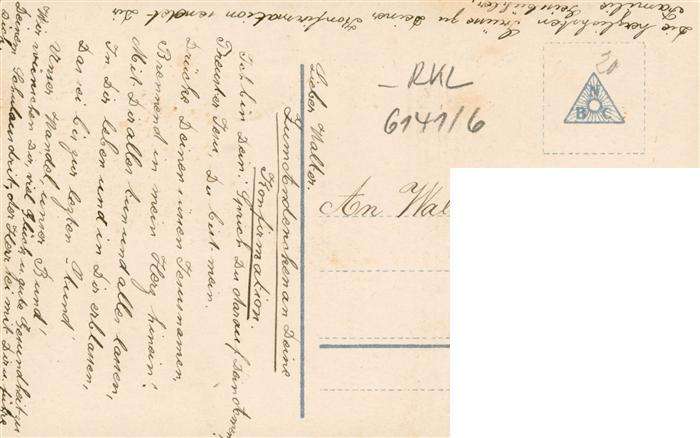 Lieber Walter.
Zum Andenken an Deine
Konfirmation.
Ich bin Dein. Sprich Du darauf Dein Amen
Treuster Jesu, Du bist mein.
Drücke Deinen süssen Jesunamen,
Brennend in mein Herz hinein!
Mit Dir alles tun und alles lassen,
In Dir leben und in Dir erblassen,
Das sei bis zur letzten Stund'
Unser Wandel, unser Bund!
Wir wünschen Dir viel Glück u. gute Gesundheit zu
Deinem Schulaustritt, der Herr sei mit Dir u. führe
Dich.
Die herzlichsten Grüsse zu Deiner Konfirmation sendet Dir
Familie
RKL
6141/6
20
N
B C
An Wal